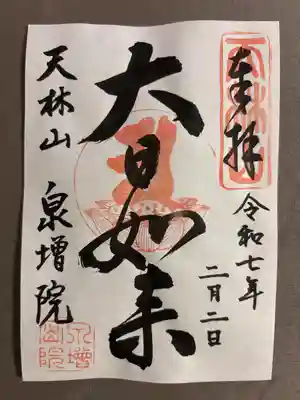 奉拝
令和七年
二月二日
大日如来
天林山 泉増院